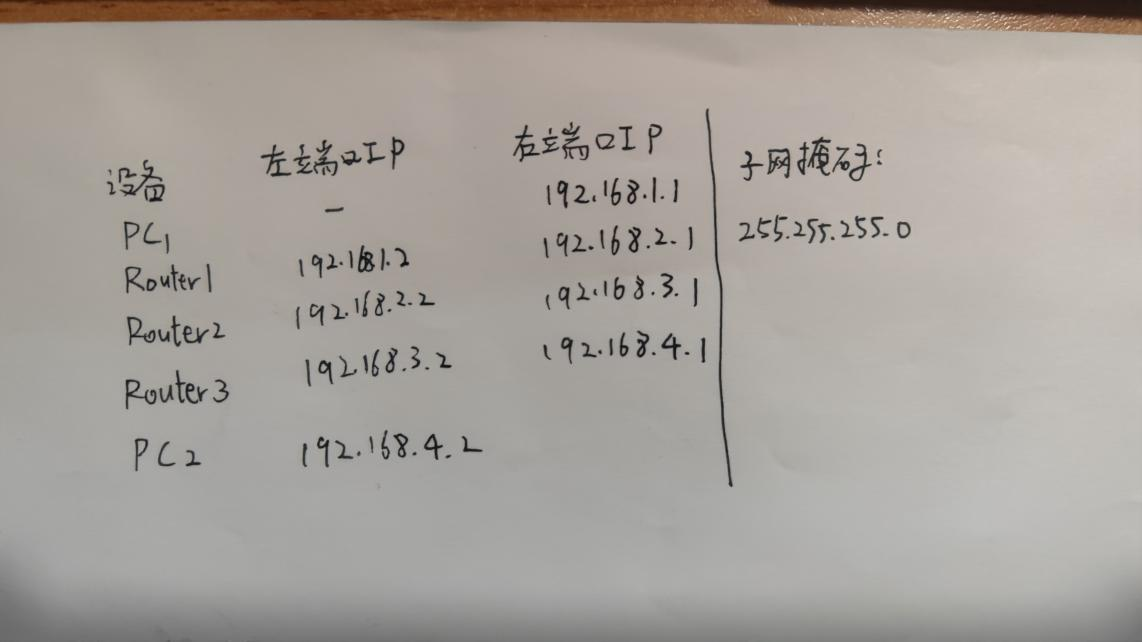 设备 左端口IP 右端口IP
PC1 — 192.168.1.1
Router1 192.168.1.2 192.168.2.1
Router2 192.168.2.2 192.168.3.1
Router3 192.168.3.2 192.168.4.1
PC2 192.168.4.2
子网掩码:
255.255.255.0